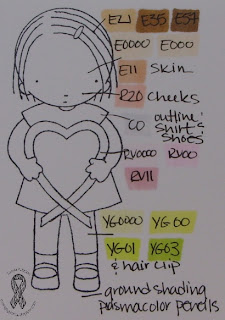 E21 E35 E57
E0000 E000
E11 skin
R20 cheeks
C0 outline
shirt &
shoes
RV0000 RV00
RV11
YG0000 YG00
YG01 YG03
& hair clip
ground shading
prismacolor pencils